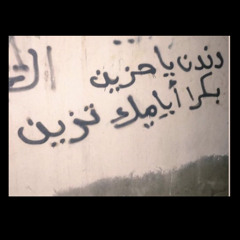 دندن يا حزين
بكرا أيامك تزين